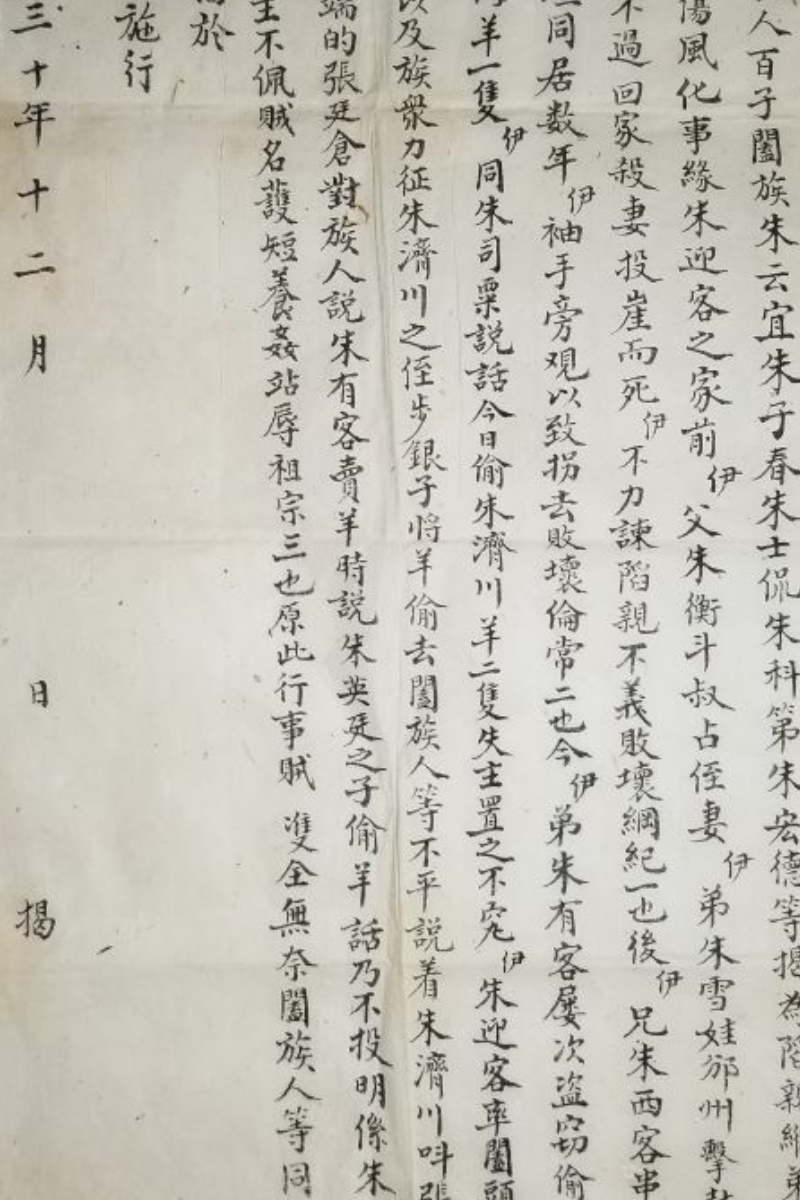 人百子闔族朱云宜朱子春朱士侃朱科第朱宏德等揭為陷親
傷風化事緣朱迎客之家前伊父朱衡斗叔占侄妻伊弟朱雪娃邠州擊
不過回家殺妻投崖而死伊不力諫陷親不義敗壞綱紀一也後伊兄朱西客串
同居数年伊袖手旁观以致拐去敗壞倫常二也今伊弟朱有客屡次盗窃偷
羊一隻伊同朱司粟説話今日偷朱濟川羊二隻失主置之不究伊朱迎客率闔頭
以及族衆力征朱濟川之侄步銀子将羊偷去闔族人等不平説着朱濟川呌張
端的張廷倉對族人説朱有客賣羊時説朱英廷之子偷羊話乃不投明係朱
主不佩賊名護短養姦玷辱祖宗三也原此行事賊雙全無奈闔族人等同
於
施行
三十年十二月 日 揭